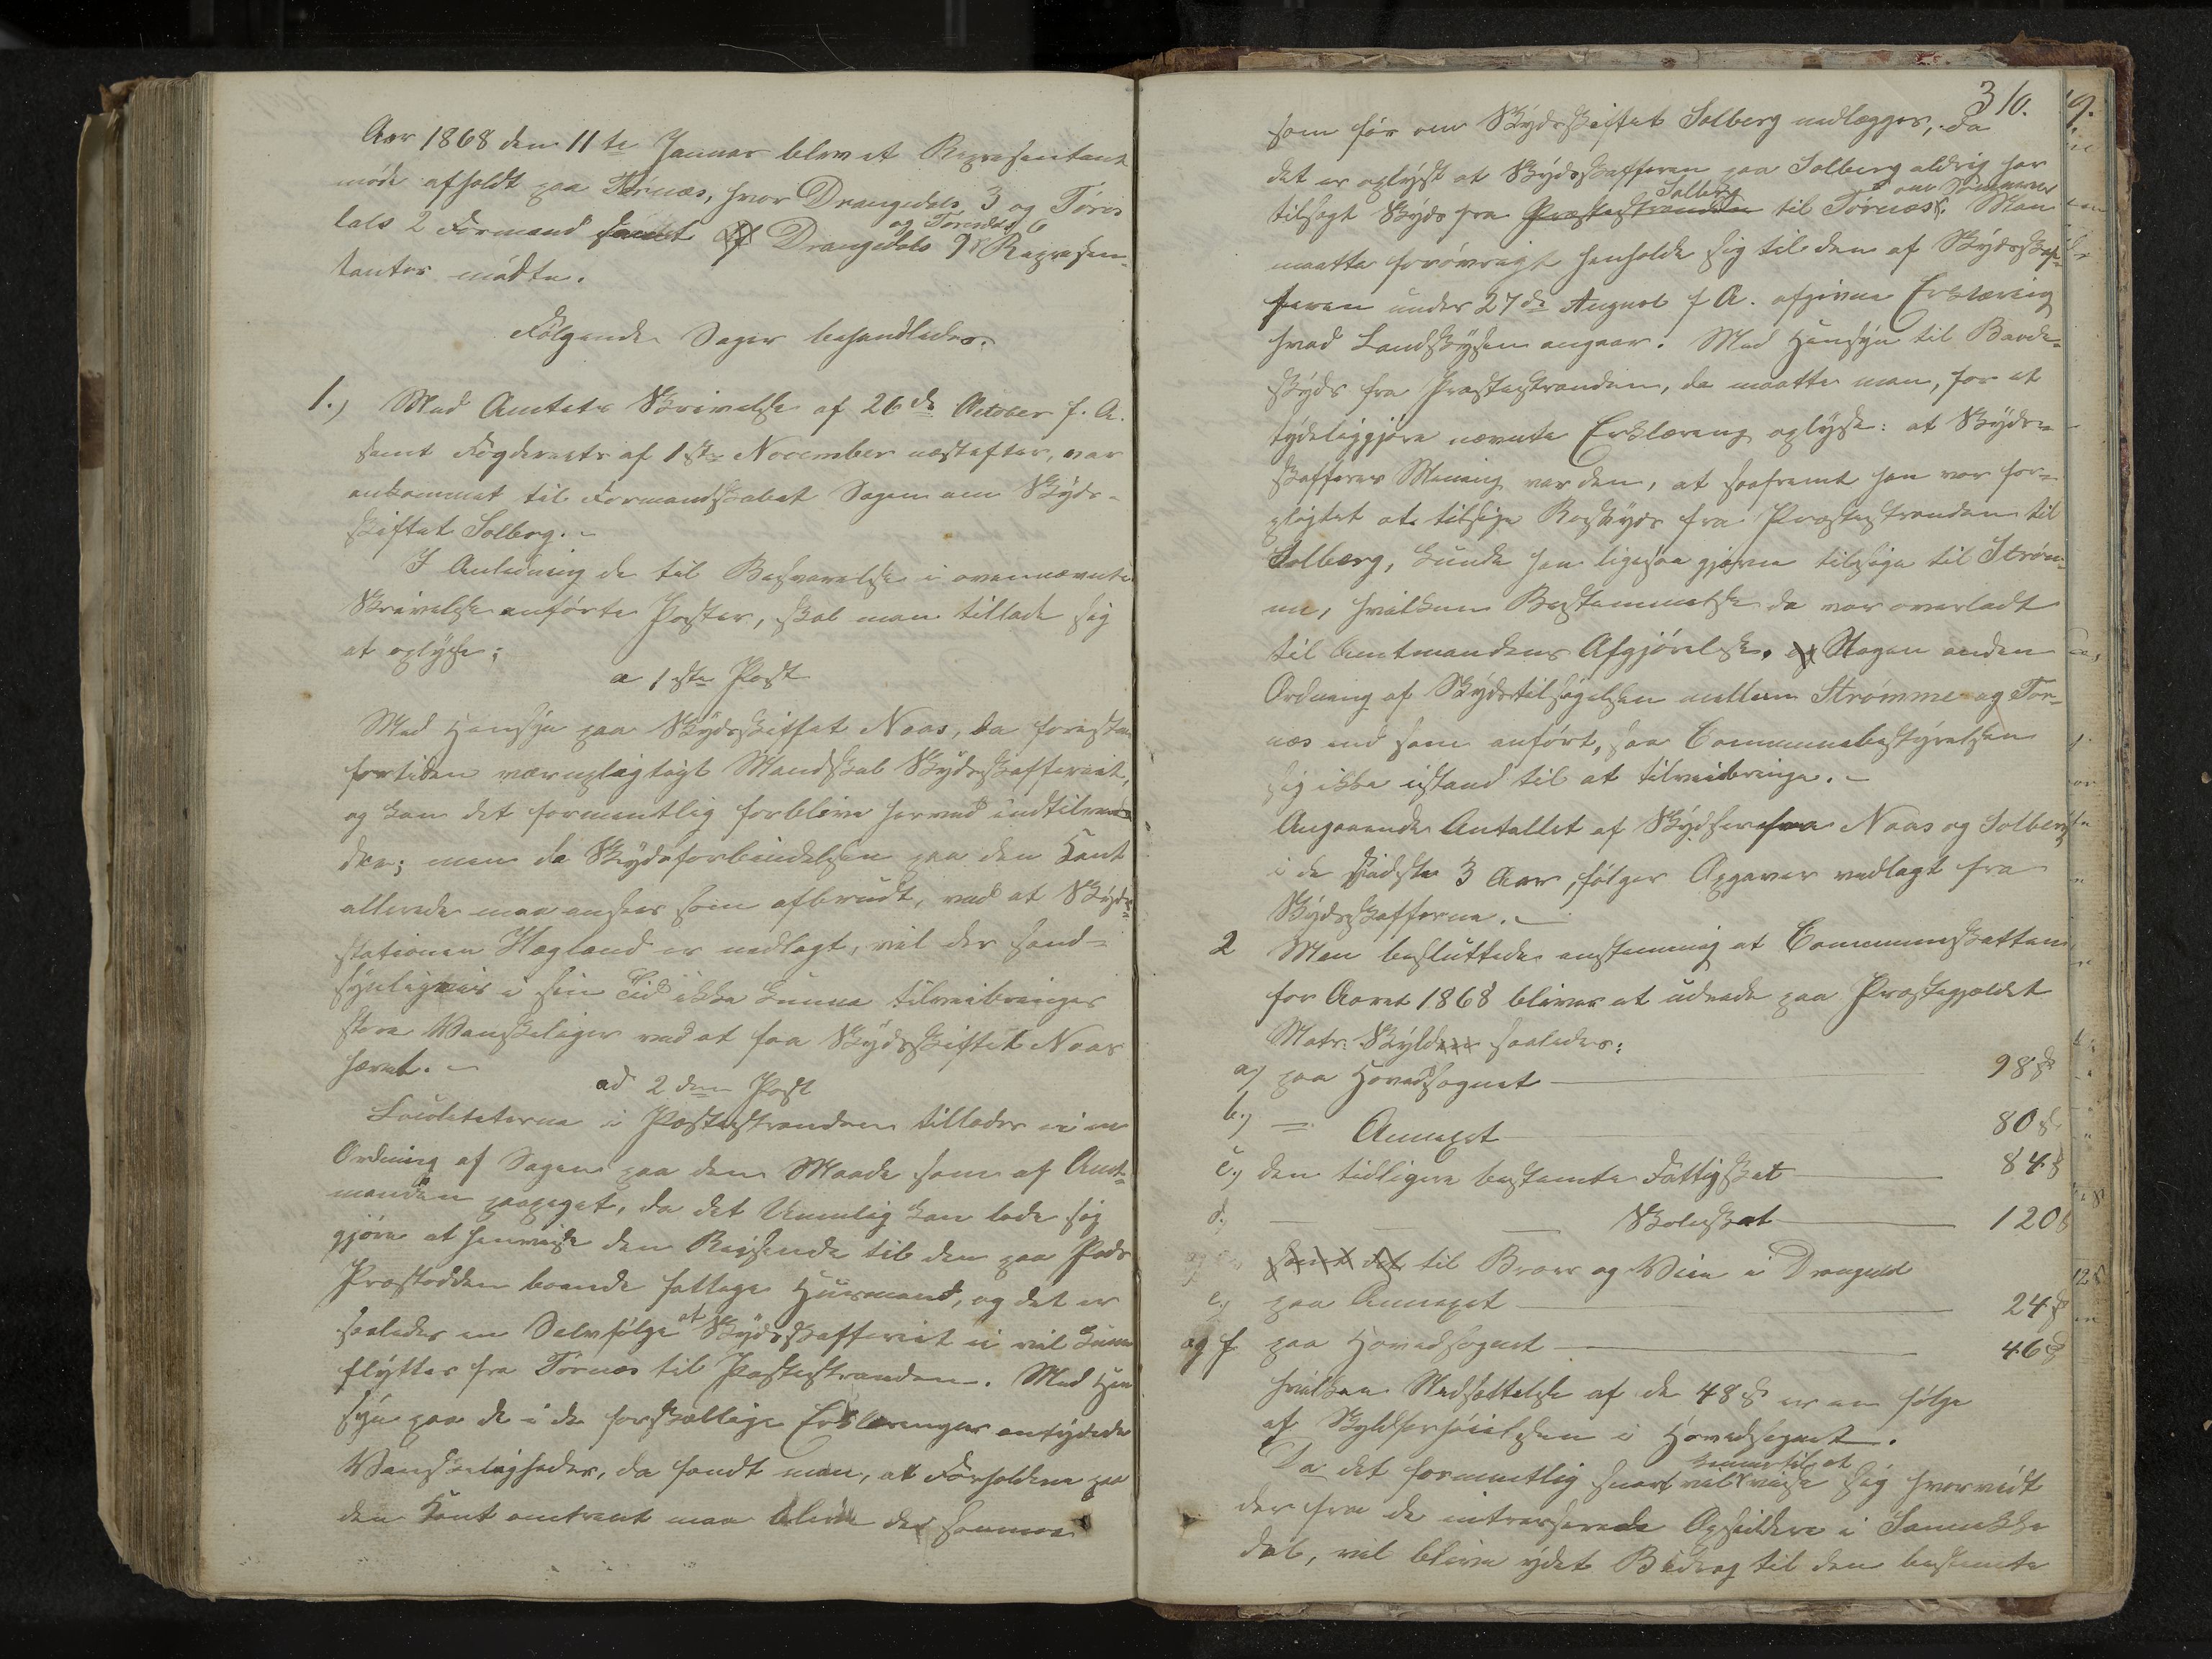 Aar 1868 den 11te Januar blev et Repræsentant
møde afholdt paa Tørnæs, hvor Drangedals 3 og Tøris
dals 2 Formænd samt af Drangedals 9 og Tørisdals 6 Repræsen-
tanter mødte.
Følgende Sager behandledes.
1.) Med Amtets Skrivelse af 26de October f. A.
samt Fogderiets af 1ste November næstefter, var
ankommet til Formandskabet Sagen om Skyds-
skiftet Solberg. -
I Anledning de til Besvarelse i ovennævnte
Skrivelse anførte Poster, skal man tillade sig
at oplyse;
a 1ste Post
Med Hensyn paa Skydsskiftet Naas, da forestaa
fortiden værnepligtigt Mandskab Skydsskafferiet,
og kan det formentlig forblive herved indtilvi-
dere; men da Skydsforbindelsen paa den Kant
allerede maa ansees som afbrudt, ved at Skyds-
stationen Hægland er nedlagt, vil der sand-
synligviis i sin Tid ikke kunne tilveibringes
store Vanskeliger ved at faa Skydsskiftet Naas
hævet. -
ad 2den Post
Localiteterne i Præstestranden tillader ei en
Ordning af Sagen paa den Maade som af Amt-
manden paapeget, da det Umulig kan lade sig
gjøre at henviise den Reisende til den paa Pads
Præstodden boende fattige Huusmand, og det er
saaledes en Selvfølge at Skydsskafferiet ei vil kunne
flyttes fra Tørnæs til Præstestranden. Med Hen
syn paa de i de forskjællige Erklæringer antydede
Vanskeligheder, da fandt man, at Forholdene paa
den Kant omtrent maa blive det samme
310.
som før om Skydsskiftet Solberg nedlægges, da
det er oplyst at Skydsskafferen paa Solberg aldrig har
tilsagt Skyds fra Præstestranden Solberg til Tørnæs om Sommeren. Man
maatte forøvrigt henholde sig til den af Skydsskaf-
feren under 27de August f A. afgivne Erklæring
hvad Landskydsen angaar. Med Hensyn til Baade-
skyds fra Præstestranden, da maatte man, for at
tydeliggjøre nævnte Erklæring oplyse: at Skyds-
skafferes Mening var den, at saafremt han var for-
pligtet at tilsige Roskyds fra Præstestranden til
Solberg, kunde han ligesaa gjerne tilsige til Strøm-
me, hvilken Bestemmelse da var overladt
til Amtmandens Afgjørelse. og Nogen anden
Ordning af Skydstilsigelsen mellem Strømme og Tør-
næs end som anført, saa Communebestyrelsen
sig ikke istand til at tilveibringe. -
Angaaende Antallet af Skydser fra Naas og Solberg
i de sidste 3 Aar, følger Opgaver vedlagt fra
Skydsskafferne. -
2 Man besluttede enstemmig at Communeskatten
for Aaret 1868 bliver at udrede paa Præstegjældet
Matr: Skylden saaledes:
a) paa Hovedsognet 98 ß
b.) = Annexet 80 ß
c.) den tidligere bestemte Fattigskat 84 ß
d. — — — Skoleskat 120 ß
samt det til Broer og Veie i Drangedal
e.) paa Annexet 24 ß
og f paa Hovedsognet 46 ß
hvilken Nedsættelse af de 48 ß er en følge
af Skyldforhøielsen i Hovedsognet.
Da det formentlig snart vil komme til at vise sig hvorvidt
der fra de interesserede Opsiddere i Sannikke
dal, vil blive ydet Bidrag til den bestemte